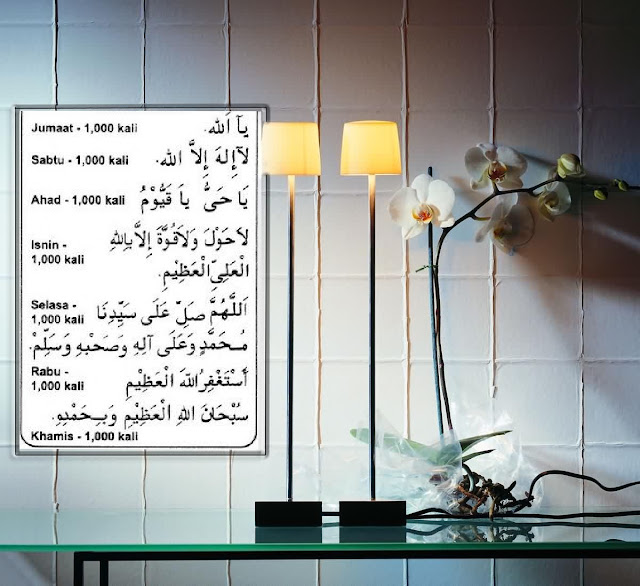 Jumaat - 1,000 kali يَآ اَللهُ.
Sabtu - 1,000 kali لَآإِلهَ إِلاَّ اللهُ.
Ahad - 1,000 kali يَا حَىُّ يَا قَيُّوْمُ
Isnin - لاَحَوْلَ وَلاَقُوَّةَ إِلاَّ بِاللهِ
1,000 kali الْعَلِىِّ الْعَظِيْمِ.
Selasa - اَللَّهُمَّ صَلِّ عَلَى سَيِّدِنَا
1,000 kali مُحَمَّدٍ وَعَلَى آلِهِ وَصَحْبِهِ وَسَلِّمْ.
Rabu - أَسْتَغْفِرُاللهَ الْعَظِيْمِ
1,000 kali
سُبْحَانَ اللهِ الْعَظِيْمِ وَبِحَمْدِهِ.
Khamis - 1,000 kali